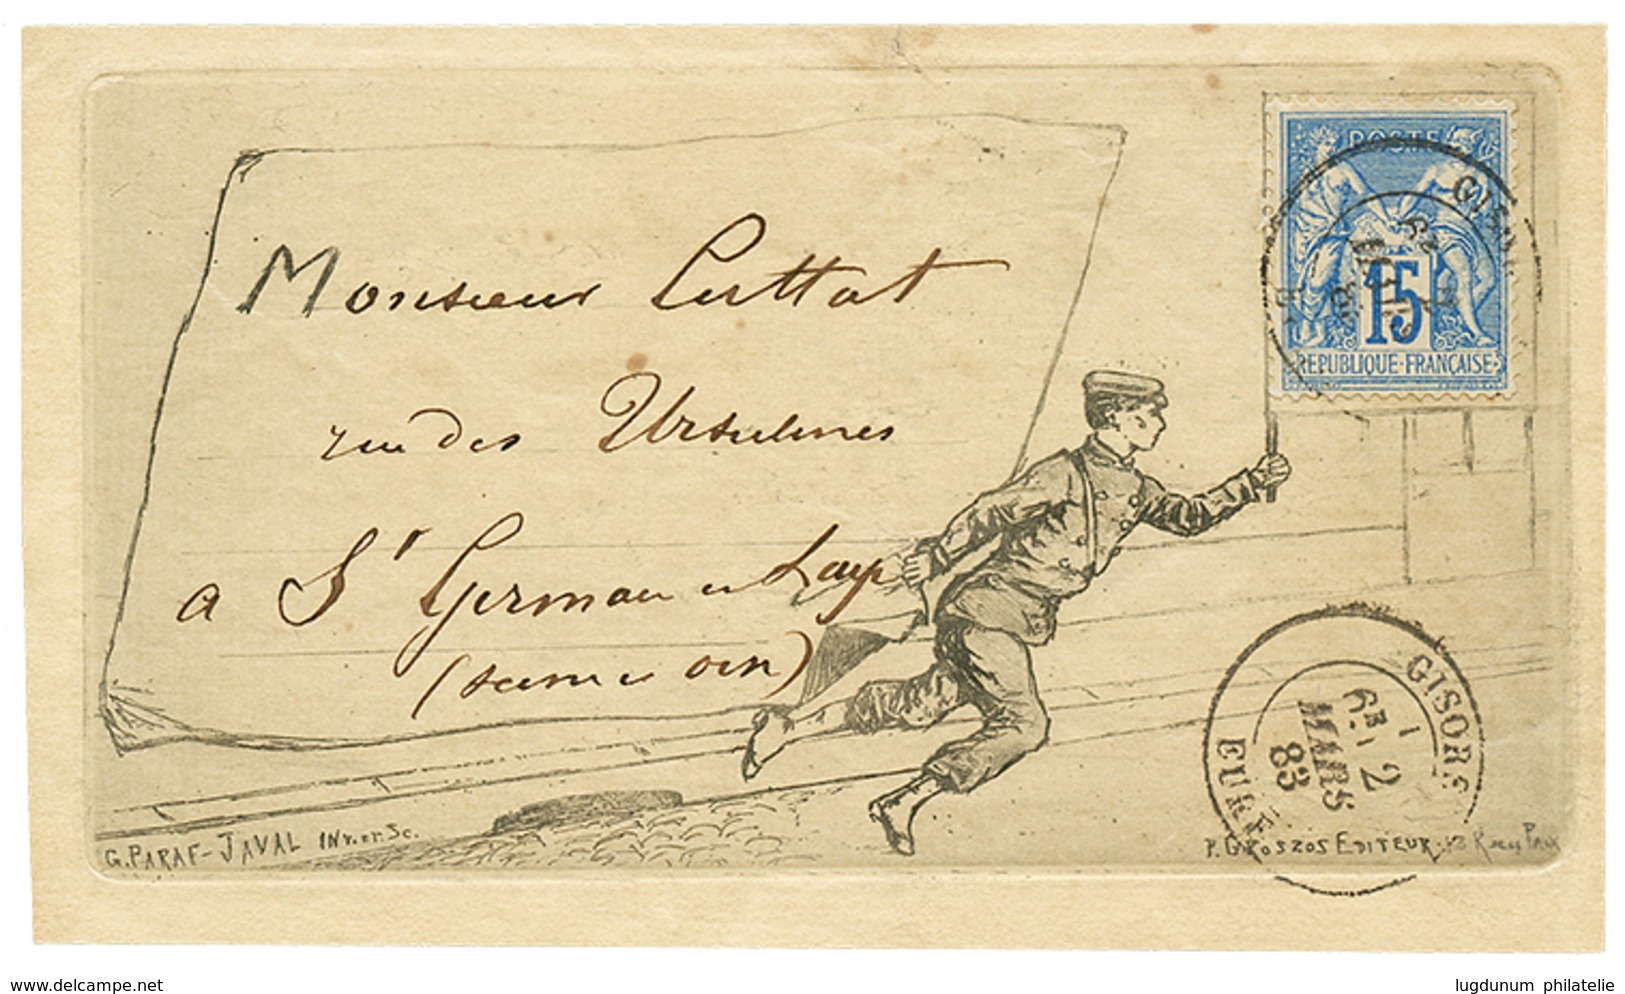 POSTE
15
REPUBLIQUE·FRANÇAISE
GISORS
Monsieur Cuttat
rue des Ursulines
a St Germain en Laye
(Seine et Oise)
GISORS
1
6E 2
MARS
83
EURE
G. PARAF-JAVAL INV. ET. SC.
P. GROSZOS EDITEUR
www.delcampe.net
lugdunum philatelie